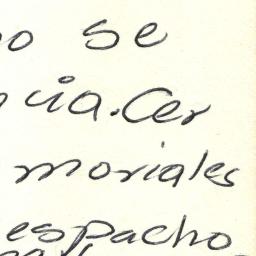 o se
cia. Cer
moriales
espacho